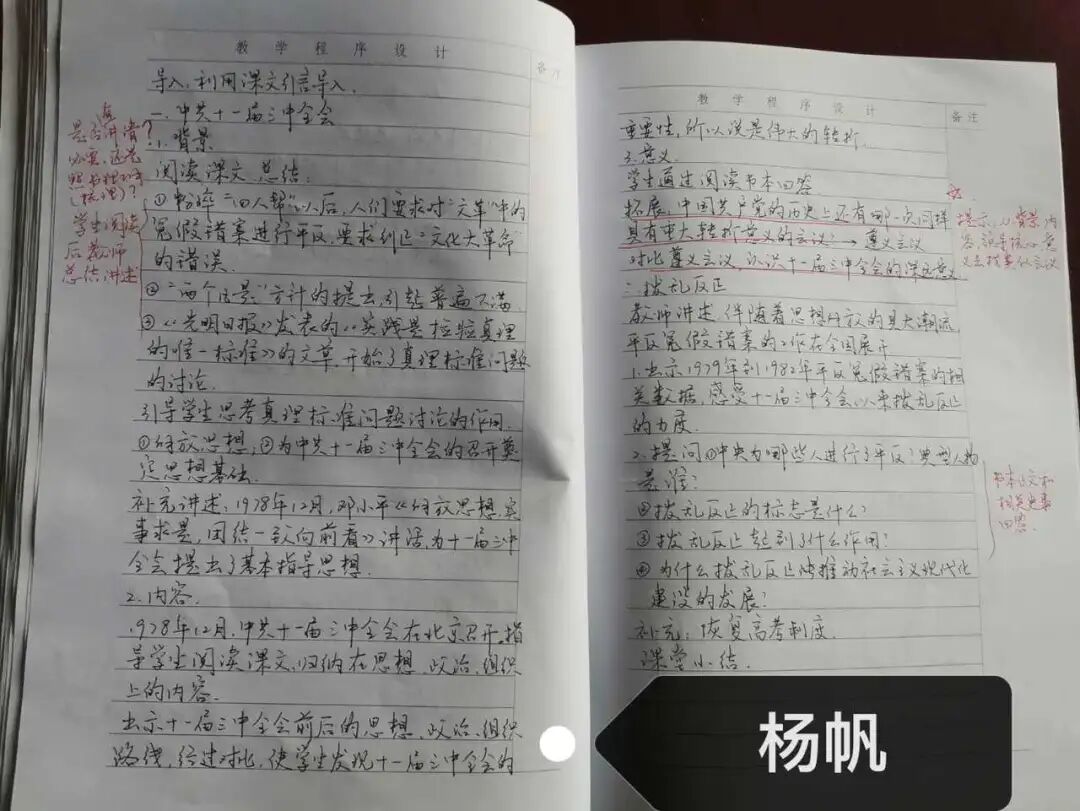 教学程序设计
备注
导入：利用课文引言导入。
一、中共十一届三中全会
1、背景
阅读课文总结：
①粉碎“四人帮”以后，人们要求对“文革”中的
冤假错案进行平反，要求纠正“文化大革命”
的错误。
②“两个凡是”方针的提出，引起普遍不满。
③《光明日报》发表的《实践是检验真理
的唯一标准》的文章，开始了真理标准问题
的讨论。
引导学生思考真理标准问题讨论的作用。
①解放思想，②为中共十一届三中全会的召开奠
定思想基础。
补充讲述：1978年12月，邓小平《解放思想，实
事求是，团结一致向前看》讲话，为十一届三中
全会提出了基本指导思想。
2、内容。
1978年12月，中共十一届三中全会在北京召开，指
导学生阅读课文，归纳在思想、政治、组织
上的内容。
出示十一届三中全会前后的思想、政治、组织
路线，经过对比，使学生发现十一届三中全会的
是否讲清
学生阅读
后教师
总结讲述
教学程序设计
备注
重要性，所以说是伟大的转折。
3、意义
学生通过阅读书本回答
拓展：中国共产党的历史上还有哪一次同样
具有重大转折意义的会议？→遵义会议
对比遵义会议，认识十一届三中全会的深远意义
二、拨乱反正
教师讲述：伴随着思想解放的巨大潮流，
平反冤假错案的工作在全国展开
1、出示1979年到1982年平反冤假错案的相
关数据，感受十一届三中全会以来拨乱反正
的力度。
2、提问①中央为哪些人进行了平反？典型人物
是谁？
②拨乱反正的标志是什么？
③拨乱反正起到了什么作用？
④为什么拨乱反正能推动社会主义现代化
建设的发展？
补充：恢复高考制度。
课堂小结。
提示：从背景、内
容
书本正文和
相关史事
回答。
杨帆